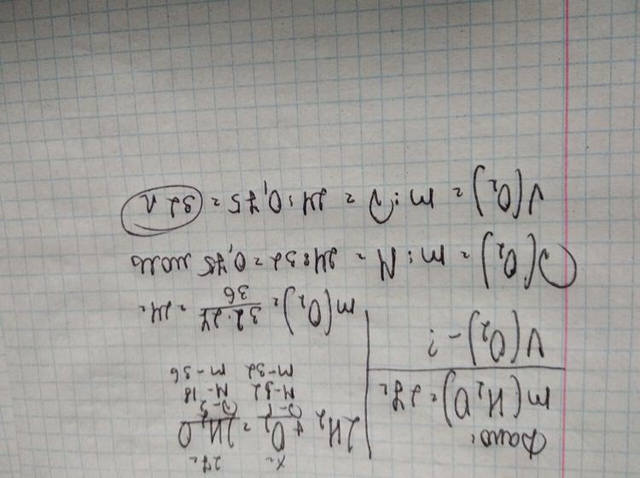 Дано:
m(H₂O)=27г
V(O₂)-?
xг 27г
2H₂+O₂=2H₂O
ν-1 ν-2
M-32 M-18
m-32 m-36
m(O₂)=32·27/36=24г
ν(O₂)=m:M=24:32=0,75 моль
V(O₂)=m:ν=24:0,75=32л